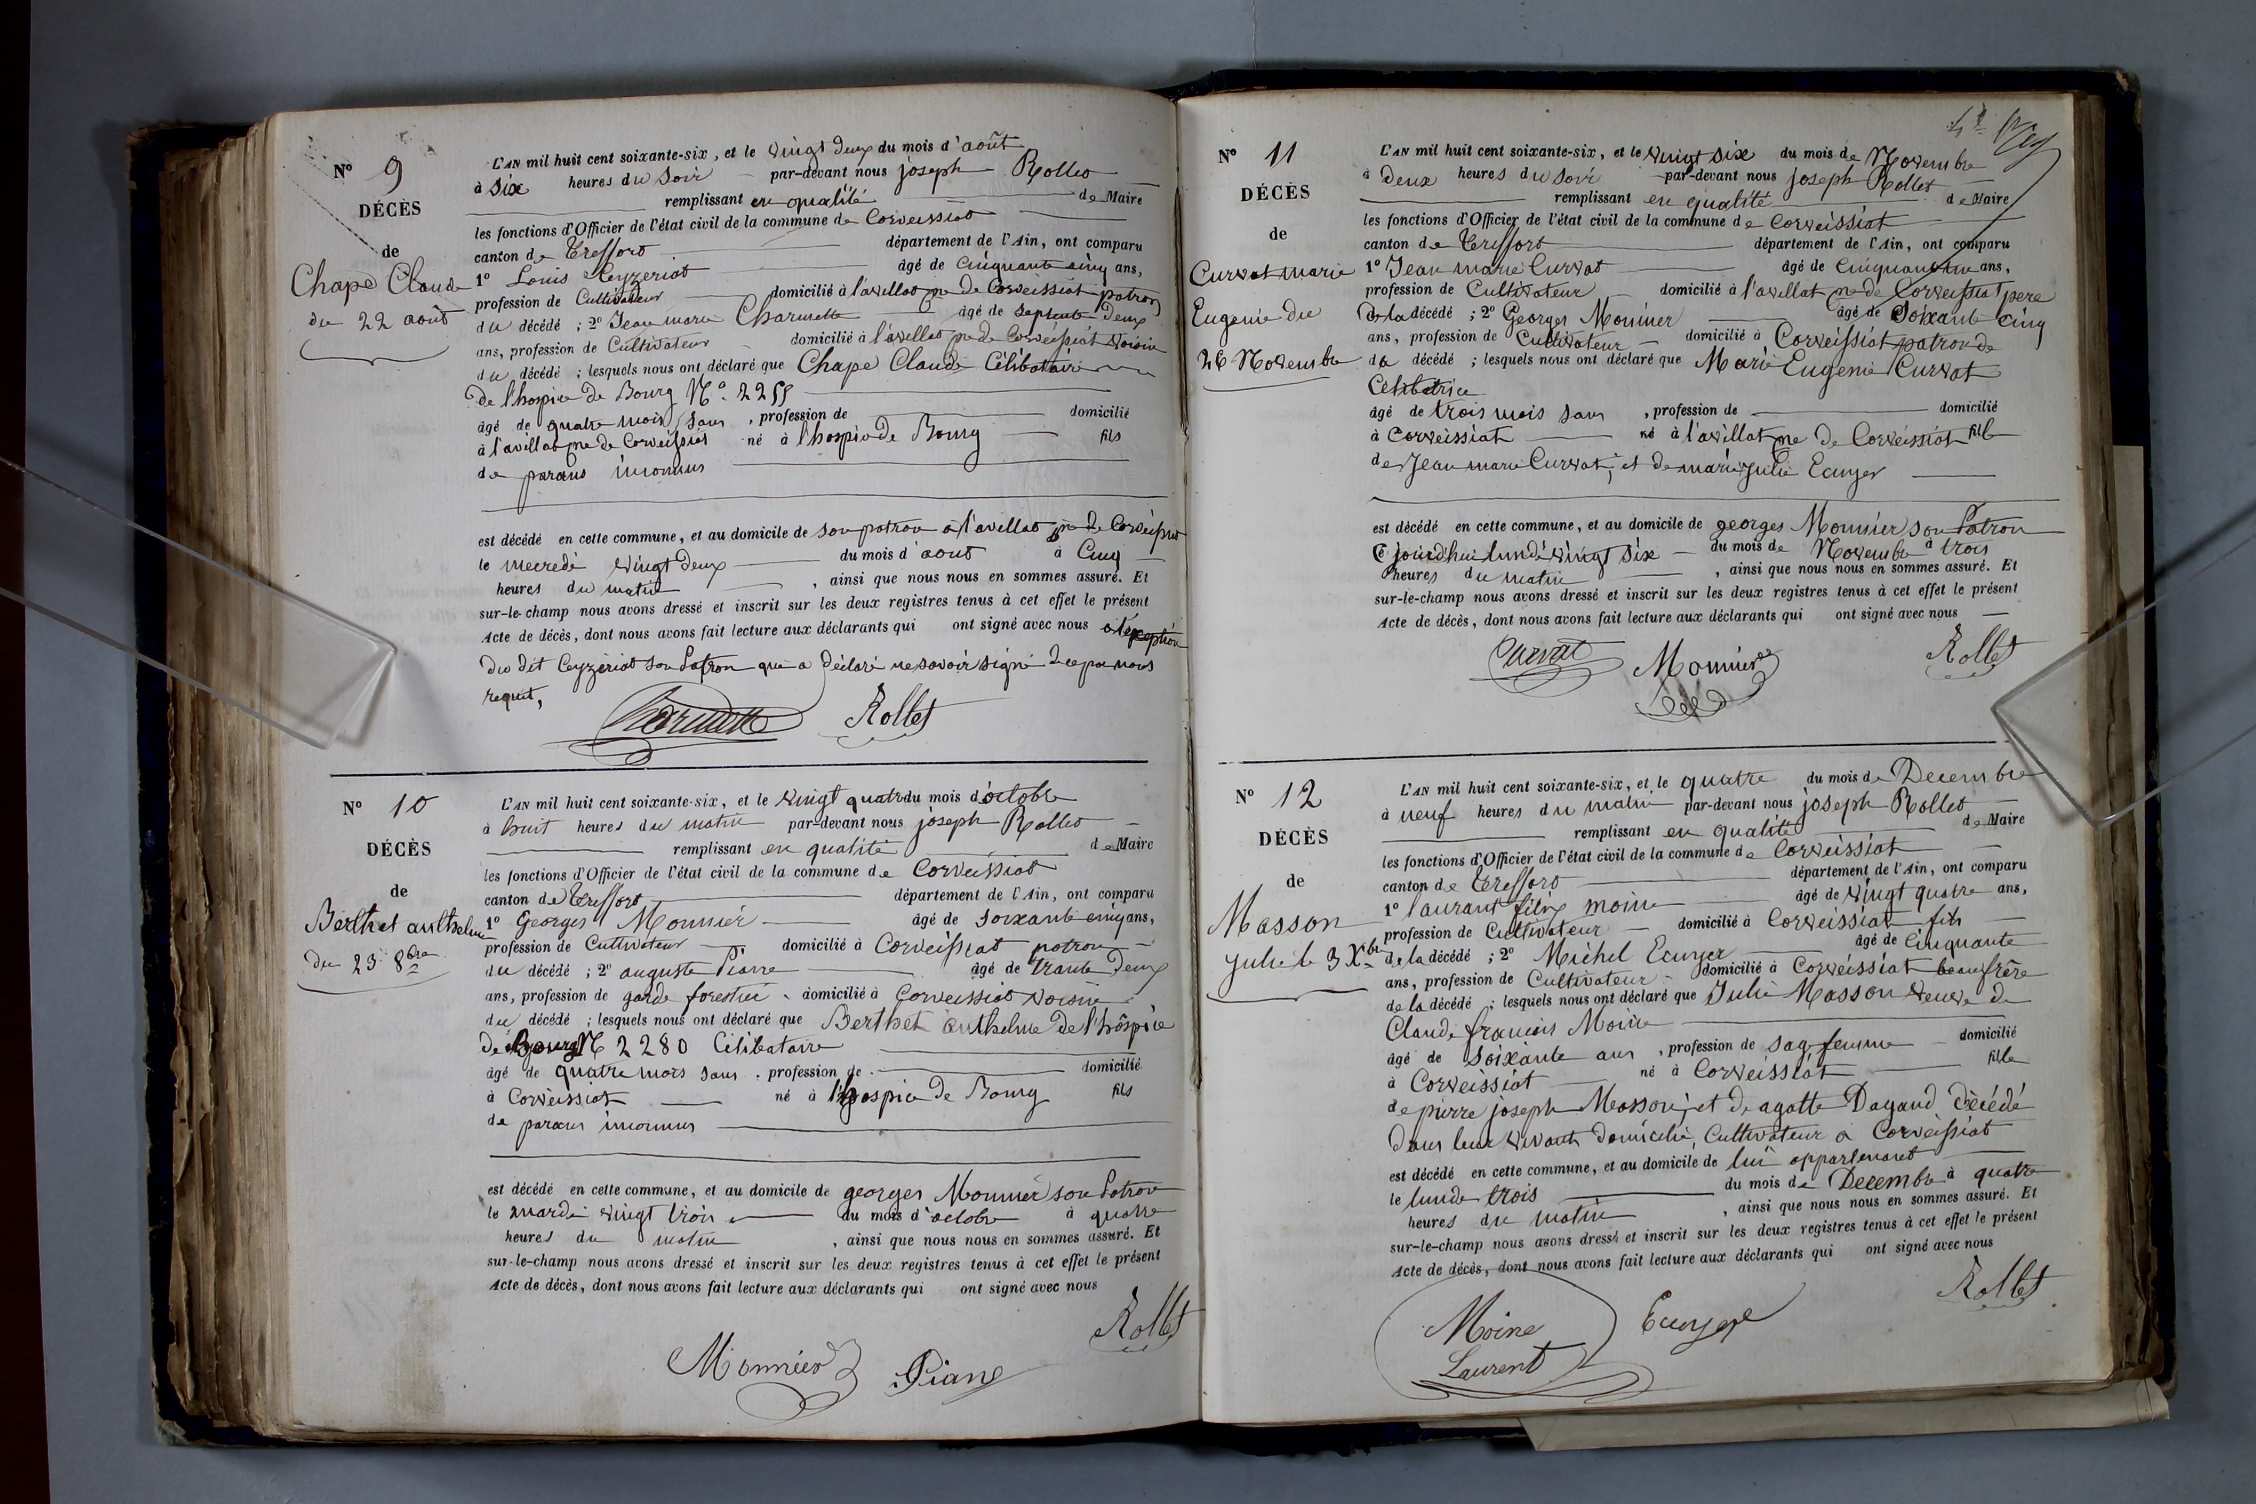 Nº 9
DÉCÈS
de
Chape Claude
du 22 août
L'AN mil huit cent soixante-six, et le vingt deux du mois d'août
à six heures du soir par-devant nous joseph Rollet
remplissant en qualité de Maire
les fonctions d'Officier de l'état civil de la commune de Corveissiat
canton de Treffort département de l'Ain, ont comparu
1º Louis Ceyzeriat âgé de cinquante cinq ans,
profession de Cultivateur domicilié à l'avellat me de Corveissiat patron
du décédé ; 2º Jean marie Charmette âgé de septente deux
ans, profession de Cultivateur domicilié à l'avellat me de Corveissiat voisin
du décédé ; lesquels nous ont déclaré que Chape Claude Célibataire
de l'hospice de Bourg Nº 2255
âgé de quatre mois sans , profession de domicilié
à l'avillat me de Corveissiat né à l'hospice de Bourg fils
de parans inconnus
est décédé en cette commune, et au domicile de son patron à l'avellat me de Corveissiat
le mecredi vingt deux du mois d'aout à Cinq
heures du matin , ainsi que nous nous en sommes assuré. Et
sur-le-champ nous avons dressé et inscrit sur les deux registres tenus à cet effet le présent
Acte de décès, dont nous avons fait lecture aux déclarants qui ont signé avec nous à l'exception
du dit Ceyzériat son Patron que a déclaré ne savoir signé de ce par nous
requit,
Charmette Rollet
Nº 10
DÉCÈS
de
Berthet anthelme
du 23 8bre
L'AN mil huit cent soixante-six, et le vingt quatre du mois d'octobre
à huit heures du matin par-devant nous joseph Rollet
remplissant en qualité de Maire
les fonctions d'Officier de l'état civil de la commune de Corveissiat
canton de Treffort département de l'Ain, ont comparu
1º Georges Monnier âgé de soixante cinq ans,
profession de Cultivateur domicilié à Corveissiat patron
du décédé ; 2º auguste Piarre âgé de trante deux
ans, profession de garde forestier domicilié à Corveissiat voisin
du décédé ; lesquels nous ont déclaré que Berthet anthelme de l'hôspice
de Bourg Nº 2280 Célibataire
âgé de quatre mois sans , profession de domicilié
à Corveissiat né à l'hospice de Bourg fils
de parans inconnus
est décédé en cette commune, et au domicile de georges Monnier son Patron
le mardi vingt trois du mois d'octobre à quatre
heures du matin , ainsi que nous nous en sommes assuré. Et
sur-le-champ nous avons dressé et inscrit sur les deux registres tenus à cet effet le présent
Acte de décès, dont nous avons fait lecture aux déclarants qui ont signé avec nous
Rollet
Monnier
Nº 11
DÉCÈS
de
Curvat marie
Eugenie du
26 Novembre
L'AN mil huit cent soixante-six, et le vingt six du mois de Novembre
à deux heures du soir par-devant nous joseph Rollet
remplissant en qualité de Maire
les fonctions d'Officier de l'état civil de la commune de Corveissiat
canton de Treffort département de l'Ain, ont comparu
1º Jean marie Curvat âgé de cinquante un ans,
profession de Cultivateur domicilié à l'avellat me de Corveissiat pere
de la décédé ; 2º Georges Monnier âgé de soixante cinq
ans, profession de Cultivateur domicilié à Corveissiat patron de
da décédé ; lesquels nous ont déclaré que Marie Eugenie Curvat
Celibatrice
âgé de trois mois sans , profession de domicilié
à Corveissiat né à l'avillat me de Corveissiat fille
de Jean marie Curvat, et de marie julie Ecuyer
est décédé en cette commune, et au domicile de georges Monnier son Patron
ce jourd'hui lundi vingt six du mois de Novembre à trois
heures du matin , ainsi que nous nous en sommes assuré. Et
sur-le-champ nous avons dressé et inscrit sur les deux registres tenus à cet effet le présent
Acte de décès, dont nous avons fait lecture aux déclarants qui ont signé avec nous
Curvat Monnier Rollet
Nº 12
DÉCÈS
de
Masson
julie le 3 Xbre
L'AN mil huit cent soixante-six, et le quatre du mois de Decembre
à neuf heures du matin par-devant nous joseph Rollet
remplissant en qualité de Maire
les fonctions d'Officier de l'état civil de la commune de Corveissiat
canton de Treffort département de l'Ain, ont comparu
1º laurant félix moine âgé de vingt quatre ans,
profession de Cultivateur domicilié à Corveissiat fils
de la décédé ; 2º Michel Ecuyer âgé de Cinquante
ans, profession de Cultivateur domicilié à Corveissiat beaufrère
de la décédé ; lesquels nous ont déclaré que Julie Masson veuve de
Claude françois Moine
âgé de soixante ans , profession de sag femme domicilié
à Corveissiat né à Corveissiat fille
de pierre joseph Masson, et de agatte Dagand décédé
dans leur vivants domicilié, Cultivateur à Corveissiat
est décédé en cette commune, et au domicile de lui appartenant
le lundi trois du mois de Decembre à quatre
heures du matin , ainsi que nous nous en sommes assuré. Et
sur-le-champ nous avons dressé et inscrit sur les deux registres tenus à cet effet le présent
Acte de décès, dont nous avons fait lecture aux déclarants qui ont signé avec nous
Rollet
Moine Ecuyer
Laurent